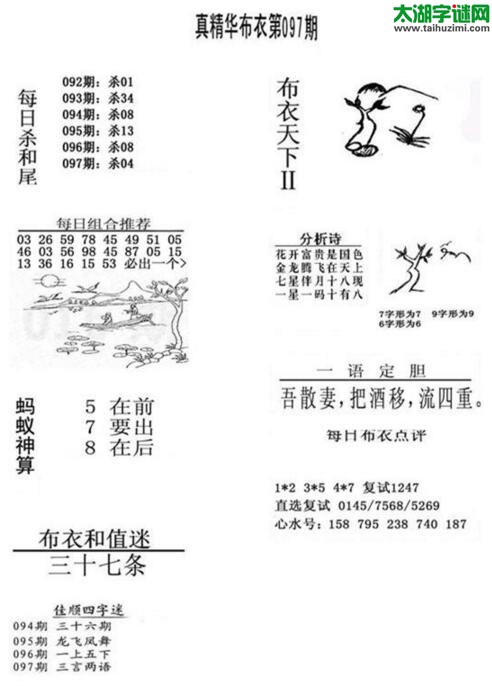 太湖字谜网
www.taihuzimi.com
真精华布衣第097期
每日杀和尾
092期：杀01
093期：杀34
094期：杀08
095期：杀13
096期：杀08
097期：杀04
布衣天下II
每日组合推荐
03 26 59 78 45 49 51 05
46 03 56 98 45 87 05 15
13 36 16 15 53 必出一个>
分析诗
花开富贵是国色
金龙腾飞在天上
七星伴月十八现
一星一码十有八
7字形为7 9字形为9
6字形为6
一语定胆
吾散妻，把酒移，流四重。
蚂蚁神算
5 在前
7 要出
8 在后
每日布衣点评
1*2 3*5 4*7 复试1247
直选复试 0145/7568/5269
心水号：158 795 238 740 187
布衣和值迷
三十七条
佳顺四字迷
094期 三十六期
095期 龙飞凤舞
096期 一上五下
097期 三言两语